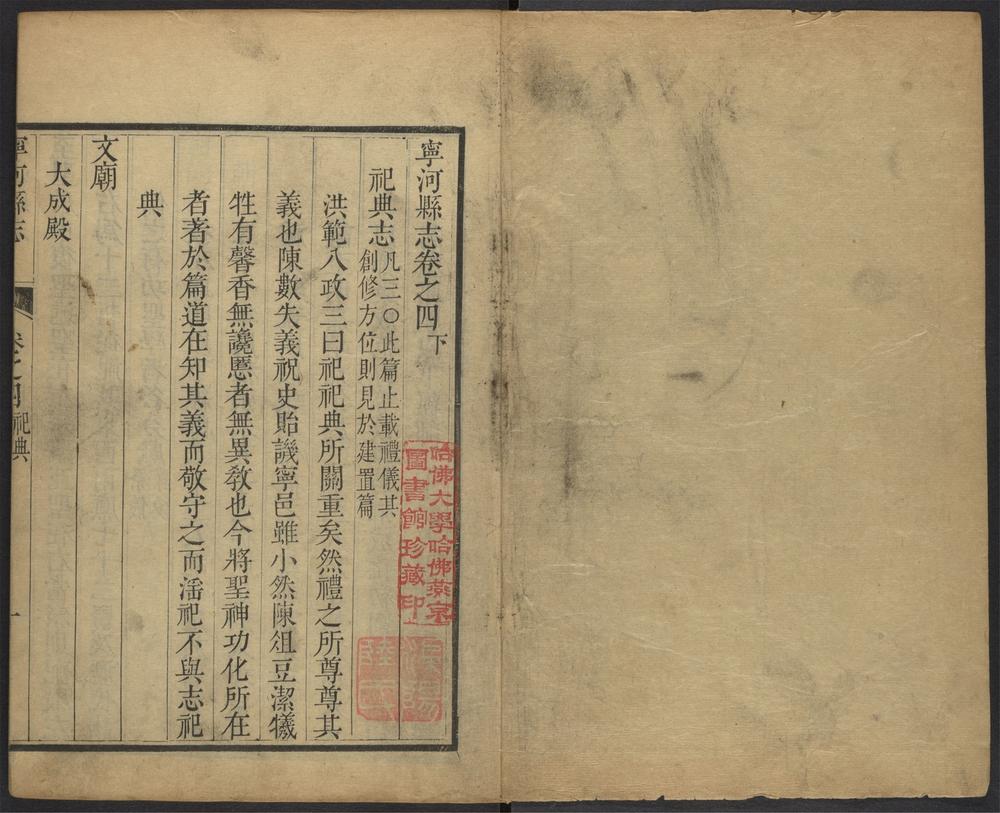 寧河縣志卷之四下
祀典志凡三〇此篇止載禮儀其
創修方位則見於建置篇
洪範八政三曰祀祀典所關重矣然禮之所尊尊其
義也陳數失義祝史貽譏寧邑雖小然陳俎豆潔犧
牲有馨香無讒慝者無異敎也今將聖神功化所在
者著於篇道在知其義而敬守之而淫祀不與志祀
典
文廟
大成殿
寧河縣志
卷之四
祀典
一
哈佛大學哈佛燕京
圖書館珍藏印